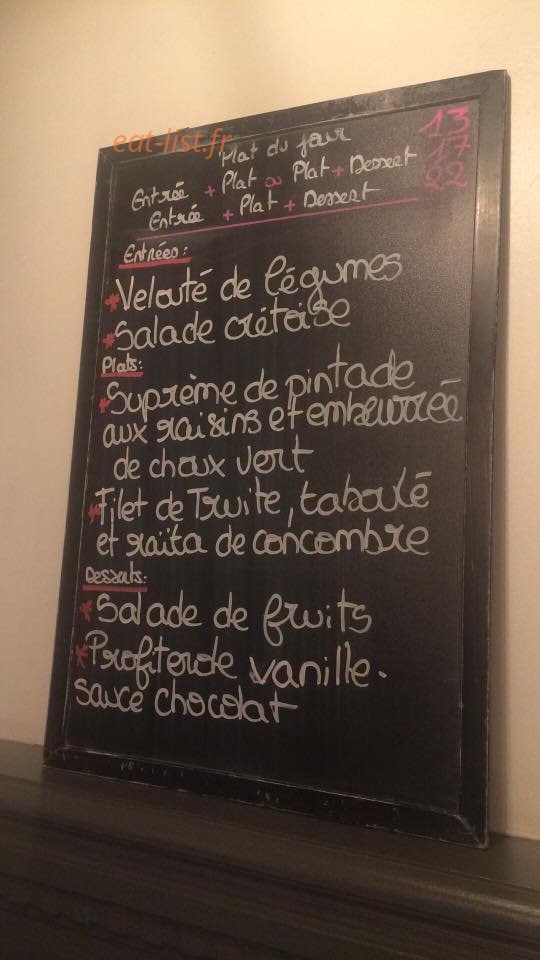 eat-list.fr
Plat du jour 13
Entrée + Plat ou Plat + Dessert 17
Entrée + Plat + Dessert 22
Entrées:
*Velouté de légumes
*Salade crétoise
Plats:
*Suprème de pintade
aux raisins et embeurrée
de choux vert
*Filet de Truite, taboulé
et raïta de concombre
Desserts:
*Salade de fruits
*Profiterole vanille.
sauce chocolat